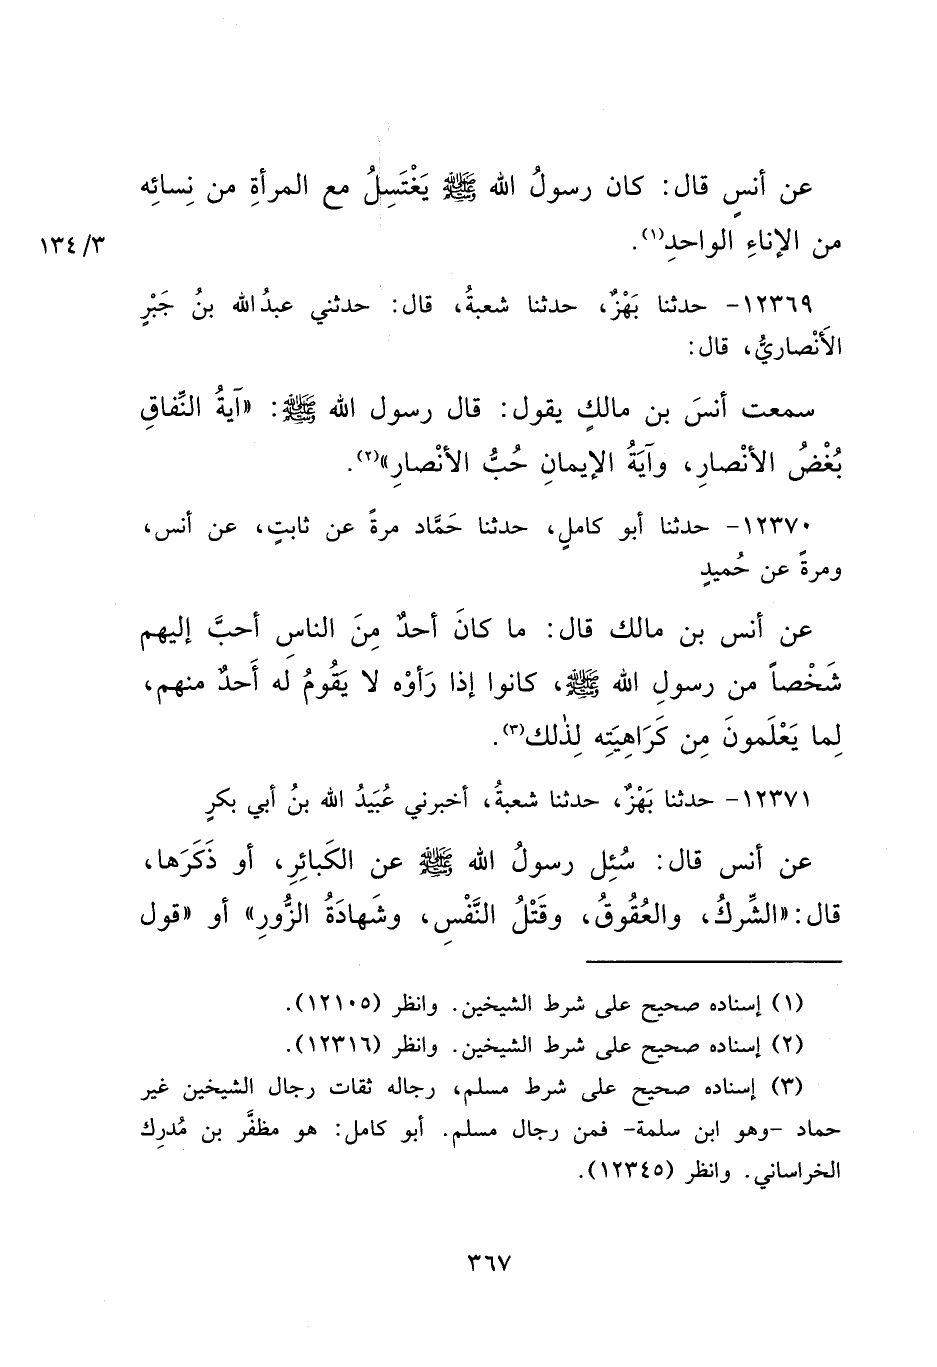 عن أنسٍ قال: كان رسولُ الله ﷺ يَغْتَسِلُ مع المرأةِ من نِسائِه
من الإناءِ الواحدِ(١).
١٣٤/٣
١٢٣٦٩- حدثنا بَهْزٌ، حدثنا شعبةُ، قال: حدثني عبدُالله بنُ جَبْرٍ
الأَنْصاريُّ، قال:
سمعت أنسَ بن مالكٍ يقول: قال رسول الله ﷺ: «آيةُ النِّفاقِ
بُغْضُ الأنْصارِ، وآيَةُ الإيمانِ حُبُّ الأنْصارِ»(٢).
١٢٣٧٠- حدثنا أبو كاملٍ، حدثنا حَمَّاد مرةً عن ثابتٍ، عن أنس،
ومرةً عن حُميدٍ
عن أنس بن مالك قال: ما كانَ أحدٌ مِنَ الناسِ أحبَّ إليهم
شَخْصاً من رسولِ الله ﷺ، كانوا إذا رَأوْه لا يَقُومُ له أَحدٌ منهم،
لِما يَعْلَمونَ مِن كَرَاهِيَتِه لِذٰلك(٣).
١٢٣٧١- حدثنا بَهْزٌ، حدثنا شعبةُ، أخبرني عُبَيدُ الله بنُ أبي بكرٍ
عن أنس قال: سُئِل رسولُ الله ﷺ عن الكَبائِرِ، أو ذَكَرَها،
قال: «الشِّركُ، والعُقُوقُ، وقَتْلُ النَّفْسِ، وشَهادَةُ الزُّورِ» أو «قول
(١) إسناده صحيح على شرط الشيخين. وانظر (١٢١٠٥).
(٢) إسناده صحيح على شرط الشيخين. وانظر (١٢٣١٦).
(٣) إسناده صحيح على شرط مسلم، رجاله ثقات رجال الشيخين غير
حماد -وهو ابن سلمة- فمن رجال مسلم. أبو كامل: هو مظفَّر بن مُدرِك
الخراساني. وانظر (١٢٣٤٥).
٣٦٧